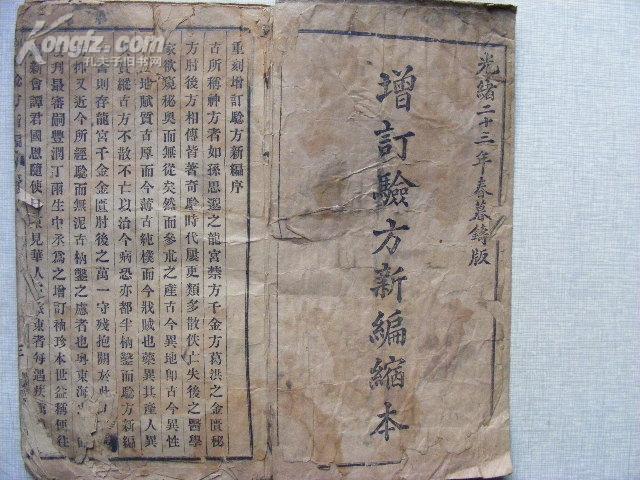 光緒二十三年春暮鑄版
增訂驗方新編縮本
重刻增訂驗方新編序
古所稱神方者如孫思邈之龍宮禁方千金方葛洪之金匱秘
方肘後方相傳皆著奇驗時代屢更類多散佚亡失後之醫學
家欲窺秘奧而無從矣然而參朮之產古今異地卽古今異性
地賦質古厚而今薄古純樸而今戕賊也藥異其產人異
質縱古方不散不亡以治今病恐亦都半枘鑿而驗方新編
書則存龍宮千金金匱肘後之萬一守殘抱闕於此
又近今所經驗而無泥古枘鑿之慮者也粵東海
刊最審嗣豐潤丁雨生中丞為之增訂袖珍本世益稱便往
新會譚君國恩隨使日 見華人 東者每遇疾
驗方新編
Kongfz.com
孔夫子旧书网